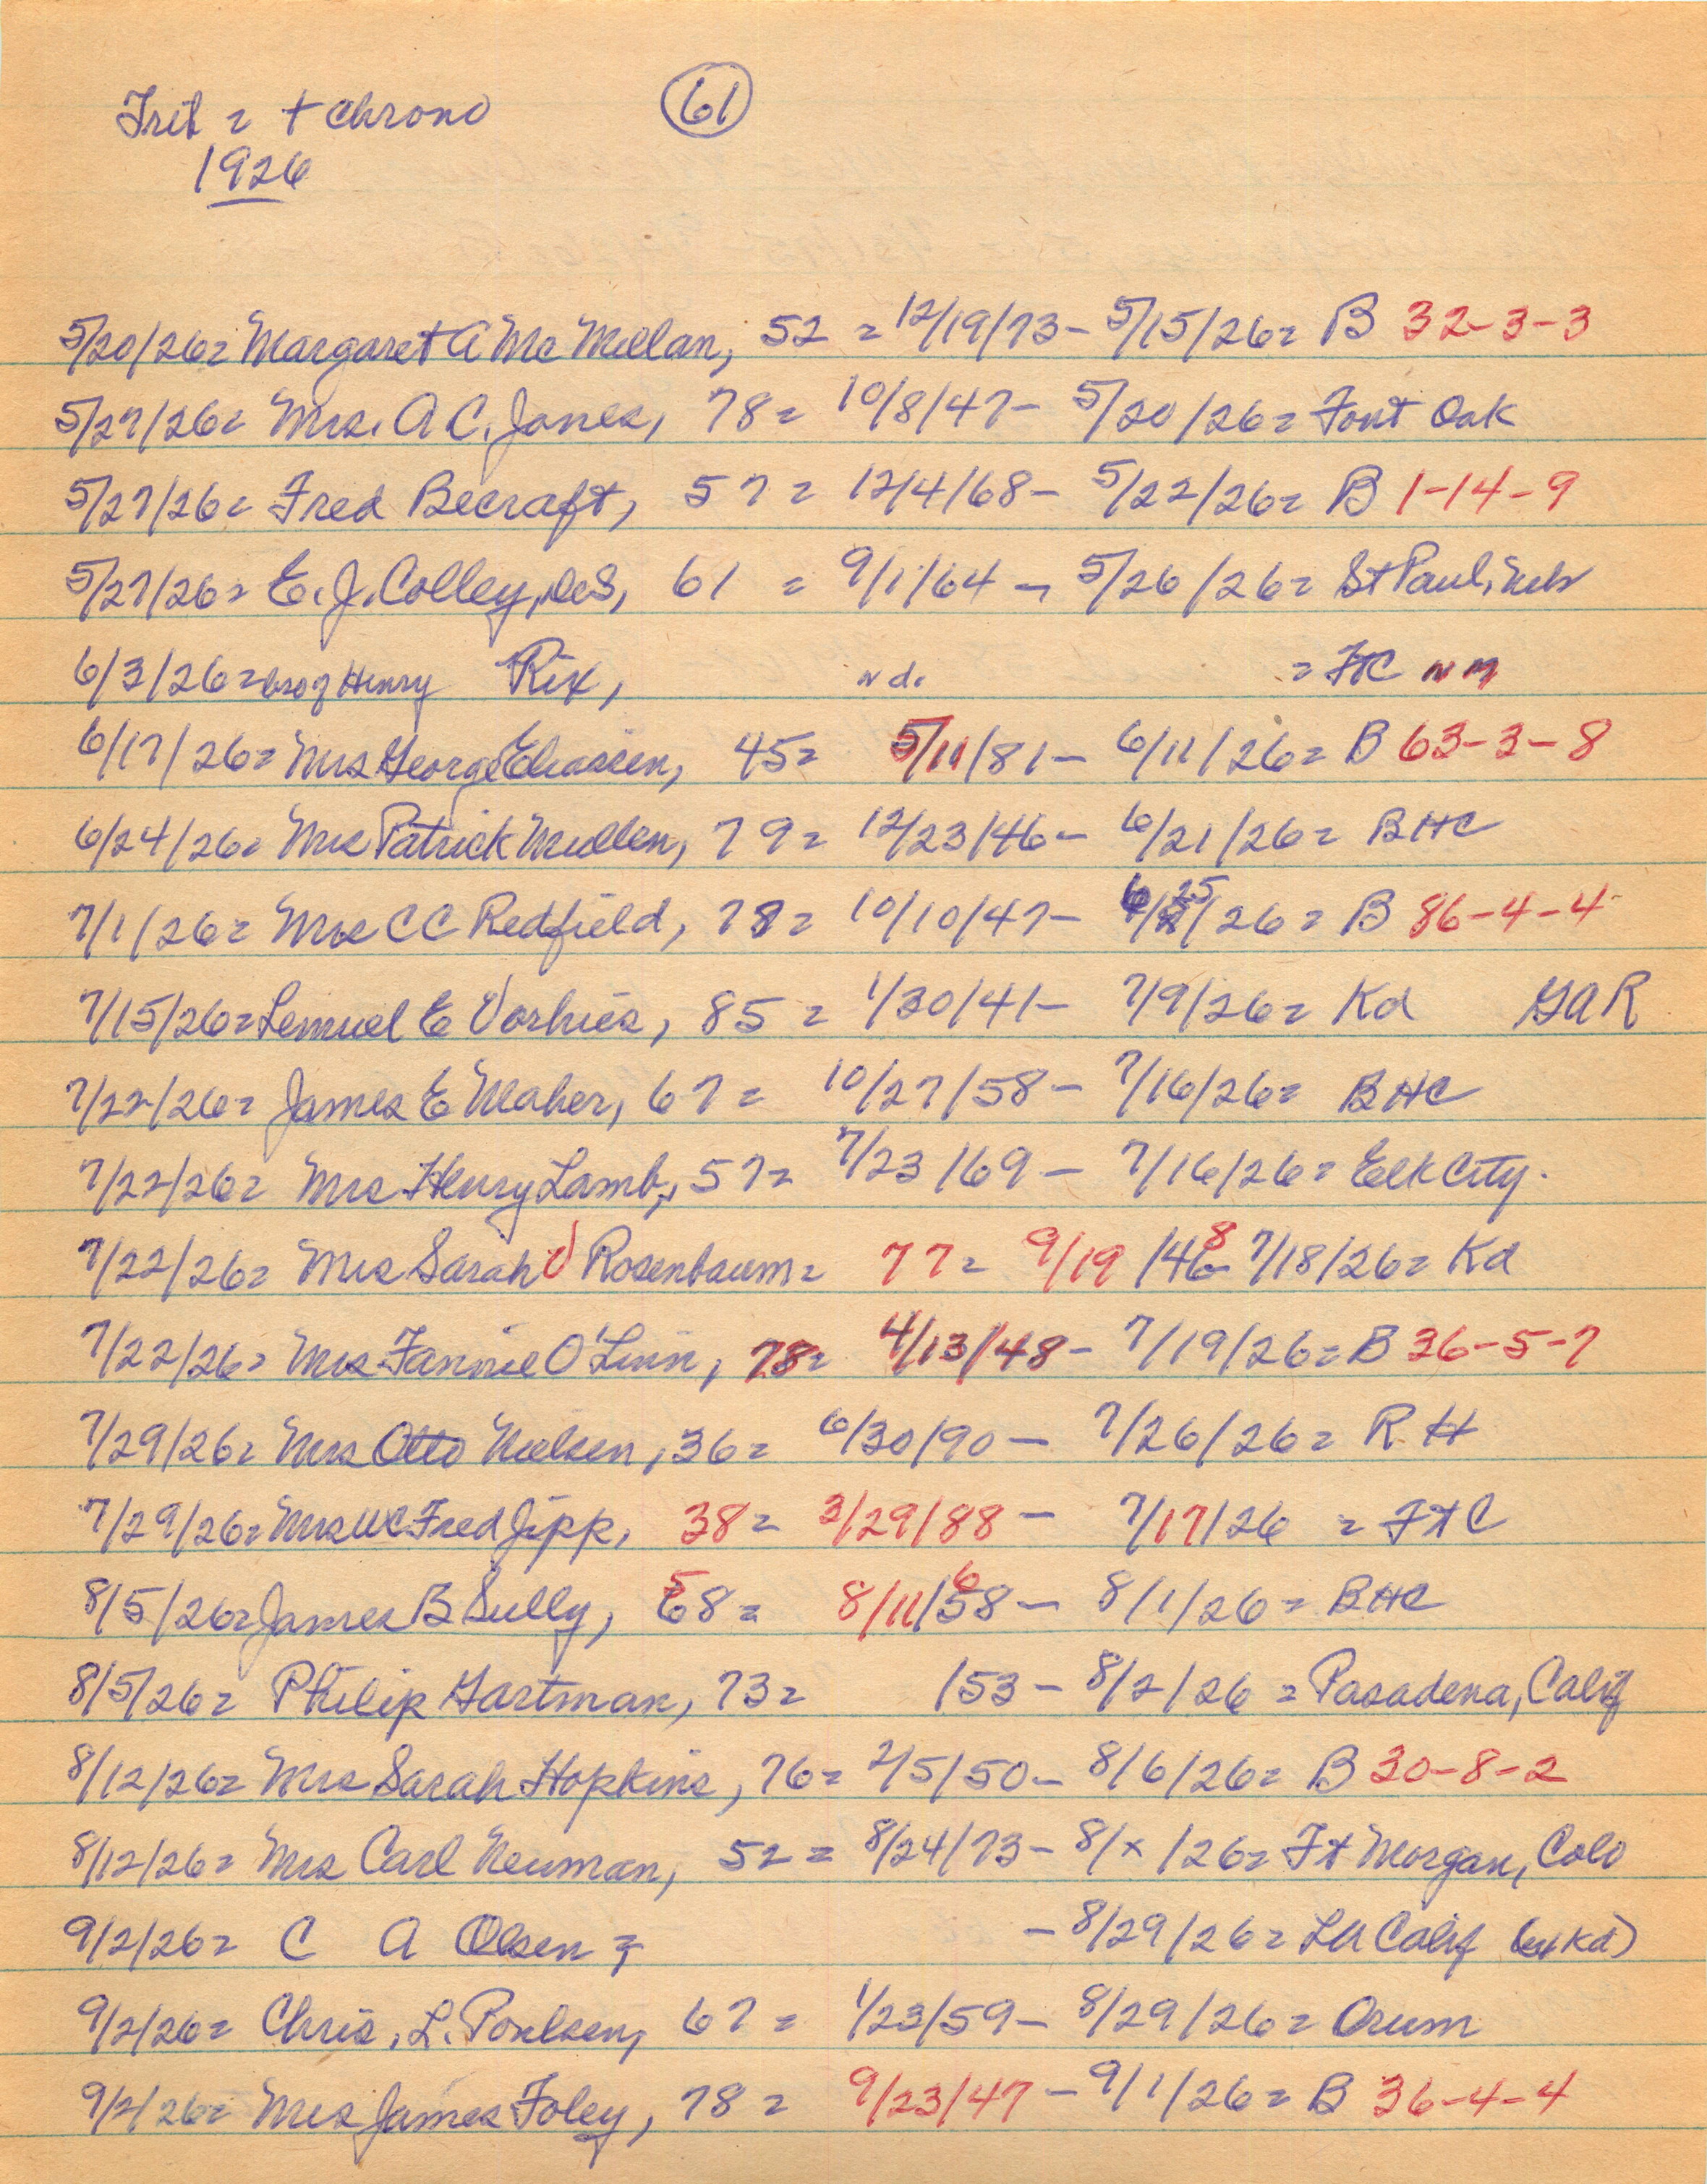 Trib = + Chrono 61
1926
5/20/26= Margaret A McMillan, 52 = 12/19/73- 5/15/26= B 32-3-3
5/27/26= Mrs. A C. Jones, 78= 10/8/47- 5/20/26= Font Oak
5/27/26= Fred Becraft, 57= 12/4/68- 5/22/26= B 1-14-9
5/27/26= E. J. Colley, 61 = 9/1/64 - 5/26/26= St Paul, Neb
6/3/26= Henry Rix, nd. = FtC nm
6/17/26= Mrs George Eliassen, 45= 5/11/81- 6/11/26= B 63-3-8
6/24/26= Mrs Patrick Mullen, 79= 12/23/46- 6/21/26= BHC
7/1/26= Mrs C C Redfield, 78= 10/10/47- 6/25/26= B 86-4-4
7/15/26= Lemuel E Vorhies, 85= 1/30/41- 7/9/26= Kd GAR
7/22/26= James E Maher, 67= 10/27/58- 7/16/26= BHC
7/22/26= Mrs Henry Lamb, 57= 7/23/69- 7/16/26= Elk City.
7/22/26= Mrs Sarah V Rosenbaum= 77= 9/19/48 7/18/26= Kd
7/22/26= Mrs Fannie O'Linn, 78= 4/13/48- 7/19/26= B 36-5-7
7/29/26= Mrs Otto Nielsen, 36= 6/30/90- 7/26/26= R H
7/29/26= Mrs WC Fred Jipp, 38= 3/29/88- 7/17/26 = FtC
8/5/26= James B Sully, 58= 8/11/68- 8/1/26= BHC
8/5/26= Philip Gartman, 73= /53- 8/2/26= Pasadena, Calif
8/12/26= Mrs Sarah Hopkins, 76= 2/5/50- 8/6/26= B 30-8-2
8/12/26= Mrs Carl Neuman, 52= 8/24/73- 8/x/26= Ft Morgan, Colo
9/2/26= C A Olsen = - 8/29/26= LA Calif (ex Kd)
9/2/26= Chris. L. Poulsen, 67= 1/23/59- 8/29/26= Orum
9/2/26= Mrs James Foley, 78= 9/23/47- 9/1/26= B 36-4-4